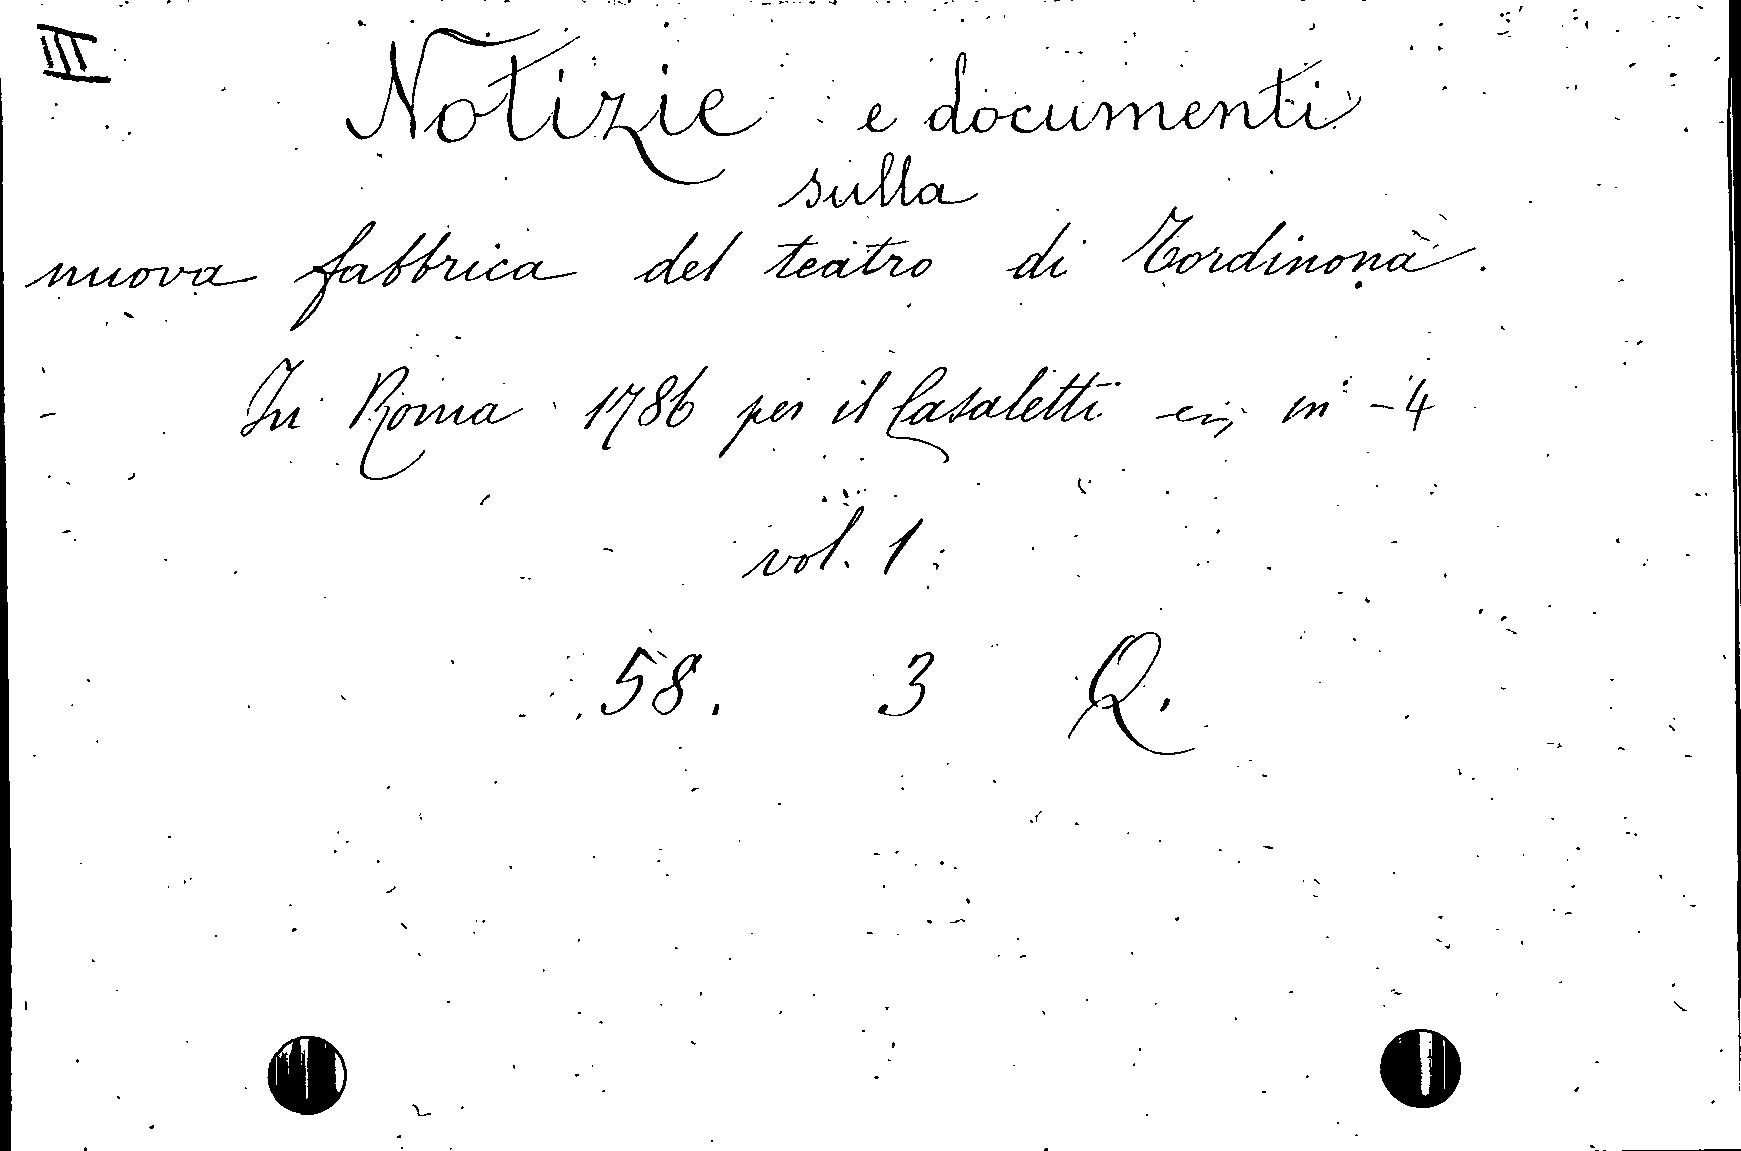 III
Notizie e documenti
sulla
nuova fabbrica del teatro di Tordinonà.
In Roma 1786 per il Casaletti in -4
vol. 1
58. 3 Q.